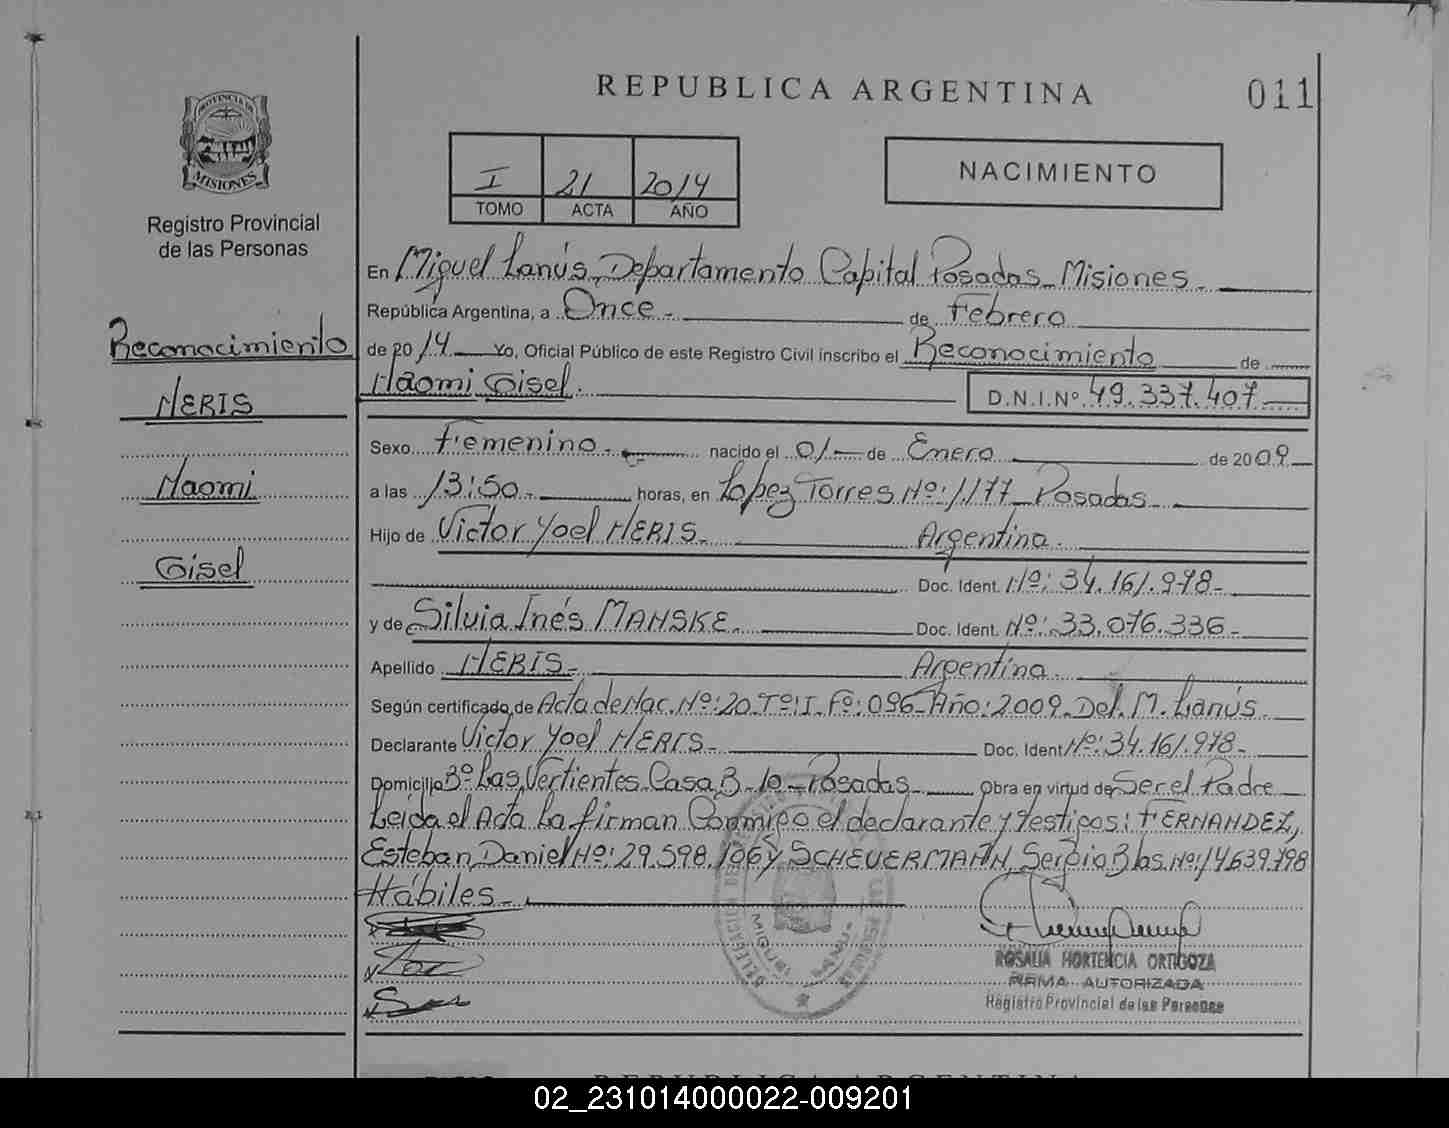 REPUBLICA ARGENTINA
011
PROVINCIA DE
MISIONES
Registro Provincial
de las Personas
I 21 2014
TOMO ACTA AÑO
NACIMIENTO
En Miguel Lanús, Departamento Capital Posadas Misiones
República Argentina, a Once de Febrero
de 2014 Yo, Oficial Público de este Registro Civil inscribo el Reconocimiento de
Naomi Gisel.
D.N.I.Nº 49.337.407
Reconocimiento
NERIS
Naomi
Gisel
Sexo Femenino nacido el 01 de Enero de 2009
a las 13:50 horas, en Lopez Torres Nº: 1177 Posadas
Hijo de Victor Yoel NERIS Argentina.
Doc. Ident. Nº: 34.161.978
y de Silvia Inés MANSKE Doc. Ident. Nº: 33.076.336
Apellido NERIS Argentina.
Según certificado de Acta de Nac. Nº: 20 Tº: I Fº: 096 Año: 2009 Del. M. Lanús
Declarante Victor Yoel NERIS Doc. Ident Nº: 34.161.978
Domicilio Bº Las Vertientes Casa B-10 Posadas Obra en virtud de Ser el Padre
Leída el Acta La firman Conmigo el declarante y testigos: FERNANDEZ,
Esteban Daniel Nº: 29.598.106 y SCHEUERMANN, Sergio Blas Nº: 14.639.798
Hábiles
ROSALIA HORTENCIA ORTIGOZA
FIRMA AUTORIZADA
Registro Provincial de las Personas
REPUBLICA ARGENTINA
02_231014000022-009201